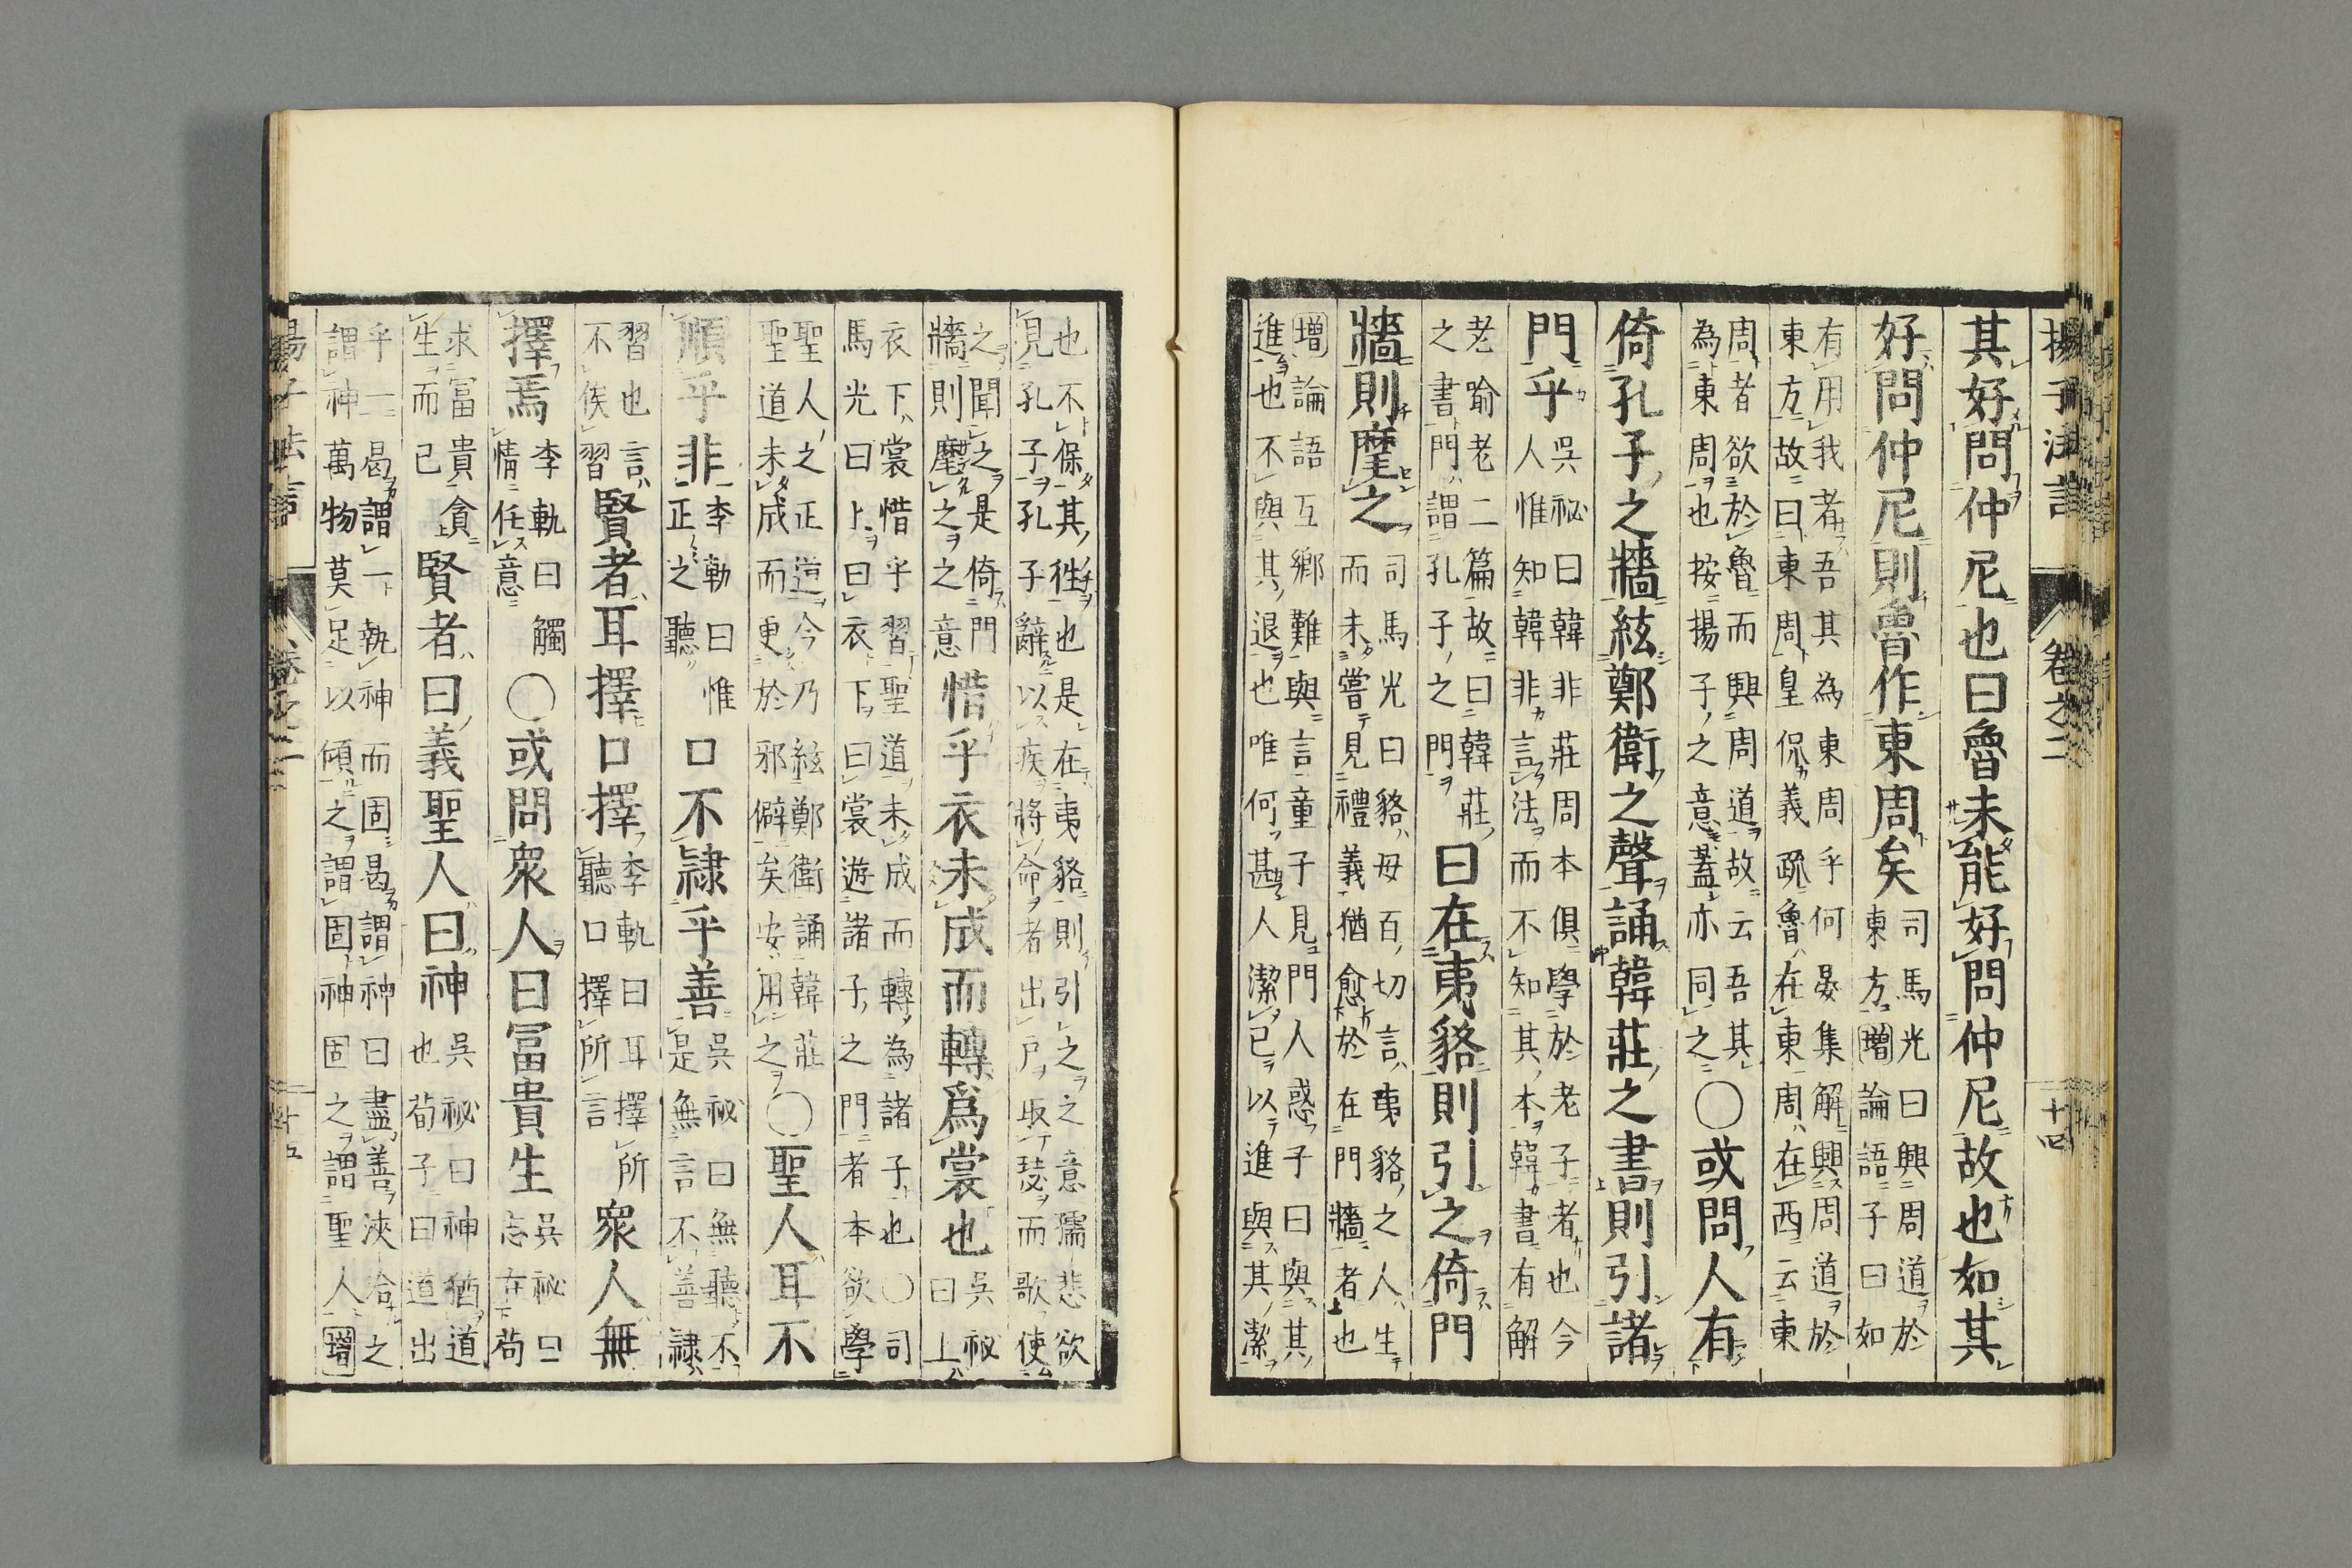 揚子法言 卷之二 十四
其好問仲尼也曰魯未能好問仲尼故也如其
好問仲尼則魯作東周矣司馬光曰興周道於
東方增論語子曰如
有用我者吾其為東周乎何晏集解興周道於
東方故曰東周皇侃義疏魯在東周在西云東
周者欲於魯而興周道故云吾其
為東周也按揚子之意蓋亦同之〇或問人有
倚孔子之牆絃鄭衛之聲誦韓莊之書則引諸
門乎吳祕曰韓非莊周本俱學於老子者也今
人惟知韓非言法而不知其本韓書有解
老喻老二篇故曰韓莊
之書門謂孔子之門曰在夷貉則引之倚門
牆則麾之司馬光曰貉母百切言夷貉之人生
而未嘗見禮義猶愈於在門牆者也
增論語互鄉難與言童子見門人惑子曰與其
進也不與其退也唯何甚人潔已以進與其潔
也不保其往也是在夷貉則引之之意孺悲欲
見孔子孔子辭以疾將命者出戶取瑟而歌使
之聞之是倚門
牆則麾之之意惜乎衣未成而轉爲裳也吳祕
曰上
衣下裳惜乎習聖道未成而轉為諸子也〇司
馬光曰上曰衣下曰裳遊諸子之門者本欲學
聖人之正道今乃絃鄭衛誦韓莊
聖道未成而更於邪僻矣安用之〇聖人耳不
順乎非李軌曰惟
正之聽口不肄乎善吳祕曰無聽不
是無言不善肄
習也言
不俟習賢者耳擇口擇李軌曰耳擇所
聽口擇所言眾人無
擇焉李軌曰觸
情任意〇或問眾人曰冨貴生吳祕曰
志在苟
求冨貴貪
生而已賢者曰義聖人曰神吳祕曰神猶道
也荀子曰道出
乎一曷謂一執神而固曷謂神曰盡善浹洽之
謂神萬物莫足以傾之謂固神固之謂聖人增
揚子法言 卷之二 十五